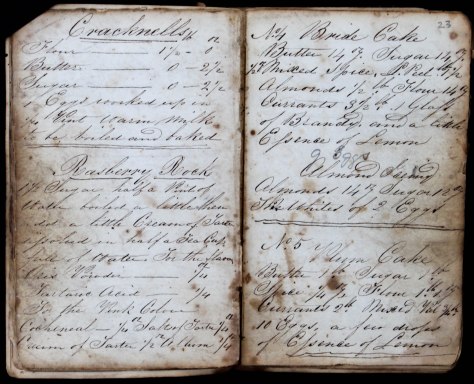 Cracknells lb oz
Flour 1½ - 0
Butter 0 - 2½
Sugar 0 - 2½
Eggs worked up in
Warm Milk
to be boiled and baked
Rasberry Rock
Sugar half a Pint of
Water boiled a little then
add a little Cream of Tarter
in half a Tea Cup
full of Water. For the flavor
Acid Powder
Tartaric Acid ¼
For the Pink Color
Cochineal Salts of Tarter ¼
Cream of Tarter ½ oz Alum ¼
23
No 4 Bride Cake
Butter 14 oz Sugar 14 oz
Mixed Spice Peel
Almonds ½ lb Flour 14 oz
Currants 3½ lb 1 Glass
of Brandy and a little
Essence of Lemon
9 Eggs
Almond Iceing
Almonds 14 oz Sugar
The Whites of Eggs
No 5 Plum Cake
Butter 1 lb Sugar 1 lb
Spice ¼ oz Flour
Currants 2 lb Mixed Peel
10 Eggs, a few drops
of Essence of Lemon